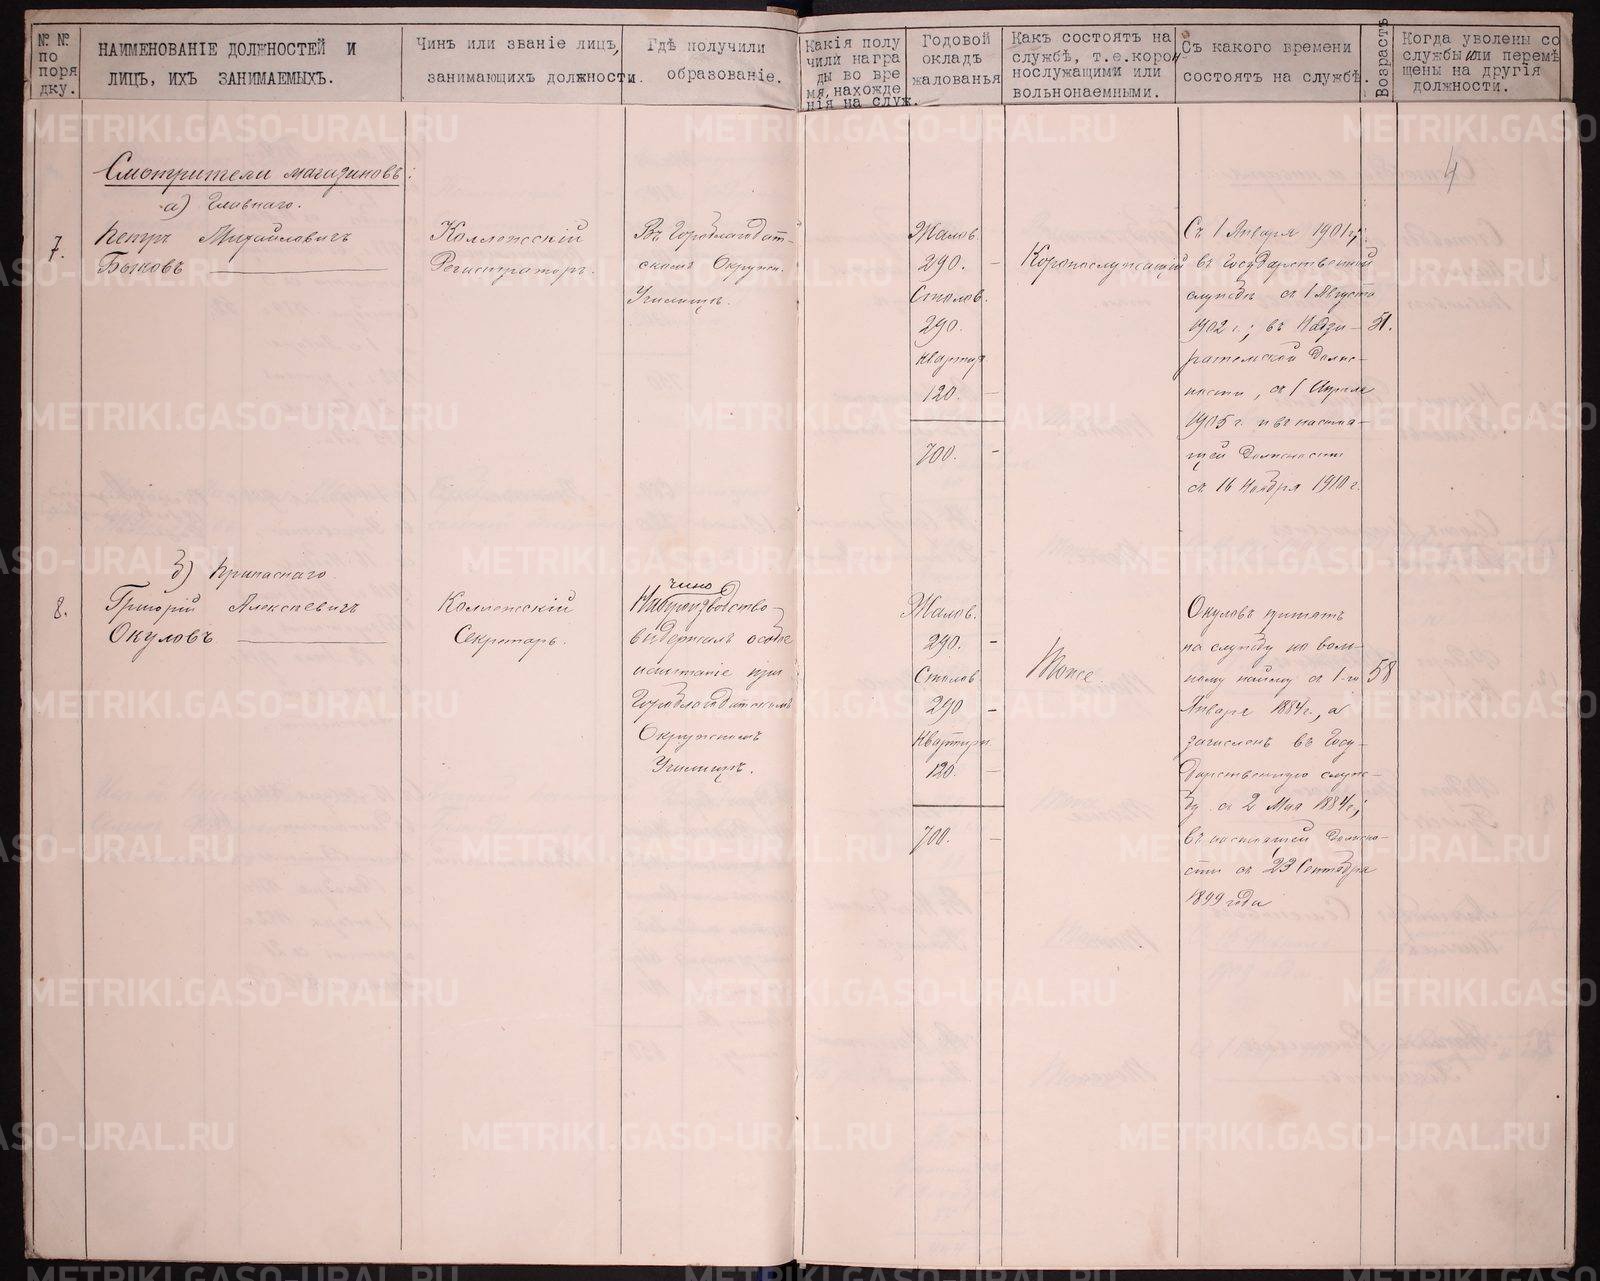 № №
по
поря
дку.
НАИМЕНОВАНІЕ ДОЛЖНОСТЕЙ И
ЛИЦЪ, ИХЪ ЗАНИМАЕМЫХЪ.
Чинъ или званіе лицъ,
занимающихъ должности.
Гдѣ получили
образованіе.
Какія полу
чили награ
ды во вре
мя, нахожде
нія на служ.
Годовой
окладъ
жалованья
Какъ состоятъ на
службѣ, т.е. корон
нослужащими или
вольнонаемными.
Съ какого времени
состоятъ на службѣ.
Возрастъ
Когда уволены со
службы или перемѣ
щены на другія
должности.
4
Смотрители магазиновъ:
а) Главнаго.
7.
Петръ Михайловичъ
Быковъ
Коллежскій
Регистраторъ.
Въ Гороблагодат-
скомъ Окружн.
Училищѣ.
Жалов.
290. -
Столов.
290.
Квартир
120. -
700. -
Коронослужащій
Съ 1 Января 1901 г.,
въ Государственной
службѣ съ 1 Августа
1902 г.; въ Надзи-
рательской долж-
ности, съ 1 Апрѣля
1905 г. и въ настоя-
щей должности
съ 16 Ноября 1910 г.
51.
б) Припаснаго
8.
Григорій Алексѣевичъ
Окуловъ
Коллежскій
Секретарь.
чино
На производство
выдержалъ особое
испытаніе при
Гороблагодатскомъ
Окружномъ
Училищѣ.
Жалов.
290. -
Столов
290 -
Квартирн.
120. -
700. -
Тоже.
Окуловъ принятъ
на службу по воль-
ному найму съ 1-го
Января 1884 г., а
зачисленъ въ Госу-
дарственную служ-
бу съ 2 Мая 1884 г.;
въ настоящей должно-
сти съ 23 Сентября
1899 года
58
METRIKI.GASO-URAL.RU